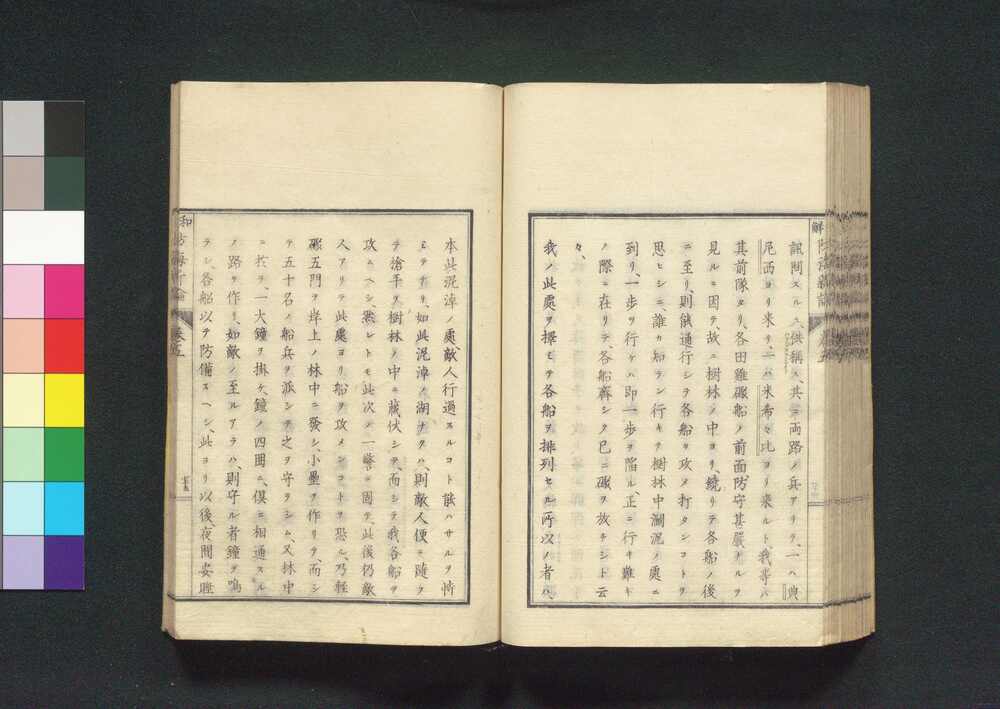 訊問スルニ、供稱ス、其ニ両路ノ兵アリテ、一ハ典
尼西ヨリ来リ、一ハ米希安比ヨリ来ルト、我等ハ
其前隊タリ、各田雞礮船ノ前面防守甚嚴ナルヲ
見ルニ因テ、故ニ樹林ノ中ヨリ、繞リテ各船ノ後
ニ至リ、則能通行シテ各船ヲ攻メ打タンコトヲ
思ヒシニ、誰カ知ラン行キテ樹林中溯泥ノ處ニ
到リ、一歩ヲ行ケハ即一歩ヲ陥ル、正ニ行キ難キ
ノ際ニ在リテ、各船齊シク已ニ礮ヲ放チシト云
々、
我ノ此處ヲ擇ヒテ各船ヲ排列セル所以ノ者ハ、
本此泥淖ノ處、敵人行過スルコト能ハサルヲ恃
ミテナリ、如此泥淖ノ湖ナクハ、則敵人便ニ随ヲ
テ槍手ヲ樹林ノ中ニ藏伏シテ、而シテ我各船ヲ
攻ムヘシ、然レトモ此次ノ一警ニ因テ、此後仍敵
人アリテ此處ヨリ船ヲ攻メンコトヲ恐ル、乃輕
礮五門ヲ岸上ノ林中ニ發シ、小壘ヲ作リテ、而シ
テ五十名ノ船兵ヲ派シテ之ヲ守ラシム、又林中
ニ於テ、一大鐘ヲ掛ケ、鐘ノ四囲ニ、倶ニ相通スル
ノ路ヲ作リ、如敵ノ至ルアラハ、則守ル者鐘ヲ鳴
ラシ、各船以テ防備スヘシ、此ヨリ以後、夜間安睡